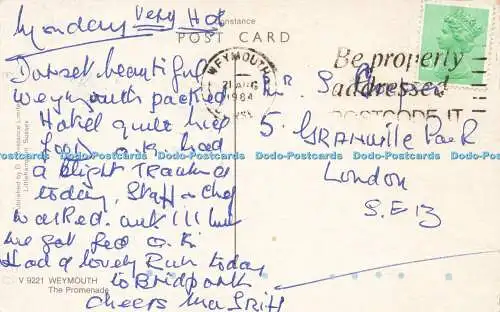 Monday Very Hot
Constance
POST CARD
Dorset beautiful
Weymouth packed
Hotel quite nice
Food O.K. had
a slight
today, Staff & Chef
walked out !!! but
we got fed O.K.
Had a lovely Run today
to Bridport
Cheers
WEYMOUTH
21 AUG
1984
Be properly
addressed
POSTCODE IT
5. GRANVILLE PARK
London
S.E 13
Published by D. Constance Limited
Littlehampton Sussex
V 9221 WEYMOUTH
The Promenade
Dodo-Postcards Dodo-Postcards Dodo-Postcards Dodo-Postcards Dodo-Postcards